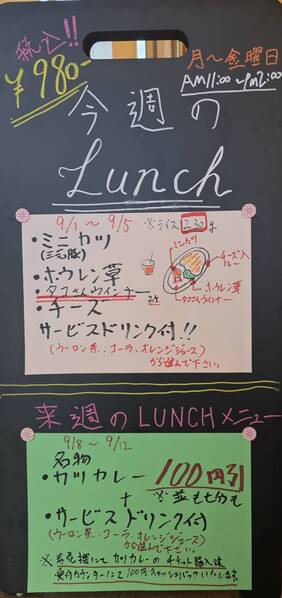 税込!!
¥980-
月～金曜日
AM11:00～PM2:00
今週の
Lunch
9/1～9/5 ※ライス230g
・ミニカツ
(三元豚)
・ホウレン草
・タコさんウインナー 2ケ
・チーズ
サービスドリンク付!!
(ウーロン茶、コーラ、オレンジジュース)
から選んで下さい。
ミニカツ
チーズ入
カレー
ホウレン草
タコさんウインナー
来週のLUNCHメニュー
9/8～9/12
名物
・カツカレー 100円引
+ ※並も七分も
・サービスドリンク付
(ウーロン茶、コーラ、オレンジジュース)
から選んで下さい。
※券売機にてカツカレーのチケット購入後
受付カウンターにて100円キャッシュバックいたします